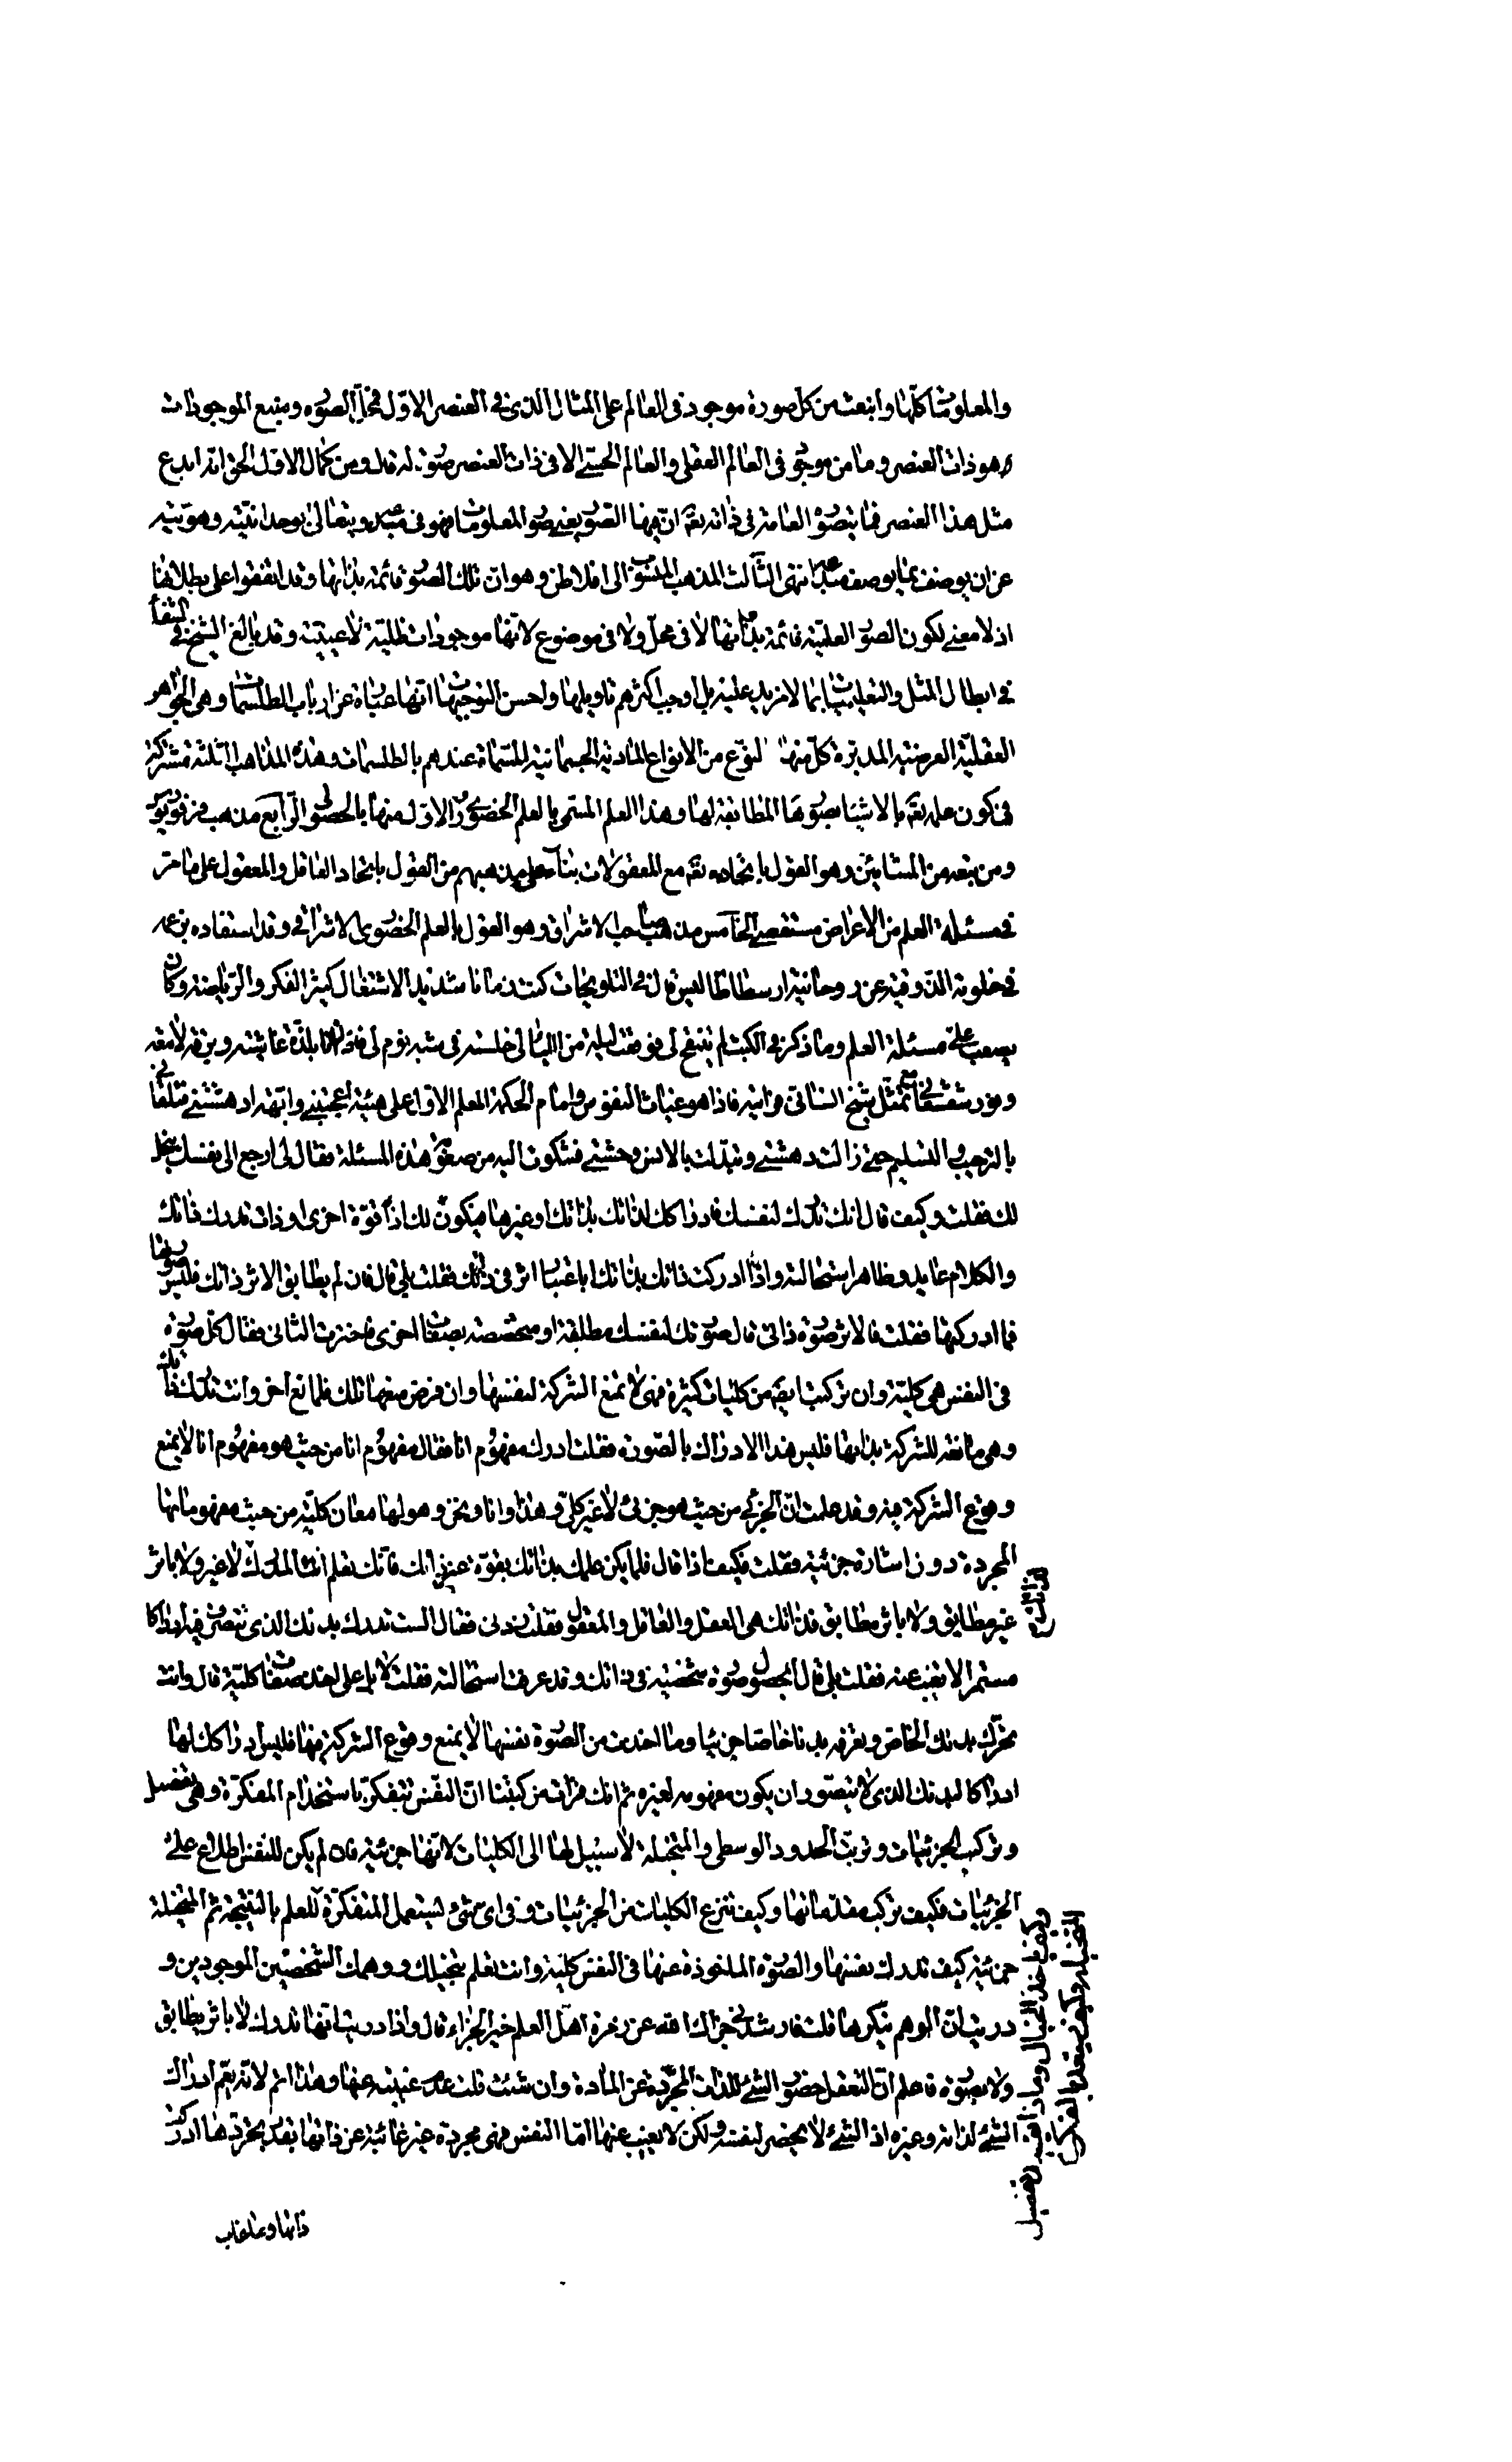 والمعلومات كلها وانبعث من كل صورة موجود في العالم على المثال الذي في العنصر الاول فمحل الصور ومنبع الموجودات
هو ذات العنصر وما من موجود في العالم العقلي والعالم الحسي الا في ذات العنصر صورة له قال ومن كمال الاول الحق انه ابدع
مثل هذا العنصر فما يتصوره العامة في ذاته تعالى ان فيها الصور يعني صور المعلومات فهو في مبدعه ويتعالى بوحدانيته وهويته
عن ان يوصف بما يوصف مبدعه انتهى الثالث المذهب المنسوب الى افلاطن وهو ان تلك الصور قائمة بذاتها وقد اتفقوا على بطلانها
اذ لا معنى لكون الصور العلمية قائمة بذاتها لا في محل ولا في موضوع لانها موجودات ظلية لا عينية وقد بالغ الشيخ في الشفا
في ابطال المثل والتعليميات بما لا مزيد عليه بل اوجب اكثرهم تاويلها واحسن التوجيهات انها عبارة عن ارباب الطلسمات وهي الجواهر
العقلية العرضية المدبرة كل منها لنوع من الانواع المادية الجسمانية المسماة عندهم بالطلسمات وهذه المذاهب الثلثة مشتركة
في كون علمه تعالى بالاشياء بصورها المطابقة لها وهذا العلم المسمى بالعلم الحضوري والاول منها بالحصولي الرابع مذهب فرفوريوس
ومن تبعه من المشائين وهو القول باتحاده تعالى مع المعقولات بناء على مذهبهم من القول باتحاد العاقل والمعقول على ما مر
في مسئلة العلم من الاعراض مستقصى الخامس مذهب صاحب الاشراق وهو القول بالعلم الحضوري الاشراقي وقد استفاده بزعمه
في خلوته الذوقية عن روحانية ارسطاطاليس قال في التلويحات كنت زمانا شديد الاشتغال كثير الفكر والرياضة وكان
يصعب على مسئلة العلم وما ذكر في الكتب لم يتنقح لي فوقعت ليلة من الليالي خلسة في شبه نوم لي فاذا انا بلذة غاشية وبرقة لامعة
ونور شعشعاني مع تمثل شبح انساني فرايته فاذا هو غياث النفوس وامام الحكمة المعلم الاول على هيئة اعجبتني وابهة ادهشتني فتلقاني
بالترحيب والتسليم حتى زالت دهشتي وتبدلت بالانس وحشتي فشكوت اليه من صعوبة هذه المسئلة فقال لي ارجع الى نفسك ينحل
لك فقلت وكيف قال انك تدرك لنفسك فادراكك لذاتك بذاتك او غيرها فيكون لك اذا قوة اخرى او ذات تدرك ذاتك
والكلام عايد وظاهر استحالته واذا ادركت ذاتك بذاتك اباعتبار اثر في ذاتك فقلت بلى قال فان لم يطابق الاثر ذاتك فليس صورتها
فما ادركتها فقلت فالاثر صورة ذاتي قال صورتك لنفسك مطلقة او متخصصة بصفات اخرى فاخترت الثاني فقال كل صورة
في النفس هي كلية وان تركبت ايضا من كليات كثيرة فهي لا تمنع الشركة لنفسها وان فرض منعها تلك فلمانع اخر وانت تدرك ذاتك
وهي مانعة للشركة بذاتها فليس هذا الادراك بالصورة فقلت ادرك مفهوم انا فقال مفهوم انا من حيث هو مفهوم انا لا يمنع
وقوع الشركة فيه وقد علمت ان الجزئي من حيث هو جزئي لا غير كلي وهذا وانا ونحن وهو لها معان كلية من حيث مفهوماتها
المجردة دون اشارة جزئية فقلت فكيف اذا قال فلما لم يكن علمك بذاتك بقوة غير ذاتك فانك تعلم انك انت المدرك لذاتك لا غير ولا باثر
غير مطابق ولا باثر مطابق فذاتك هي العقل والعاقل والمعقول فقلت زدني فقال الست تدرك بدنك الذي تتصرف فيه ادراكا
مستمرا لا تغيب عنه فقلت بلى قال ابحصول صورة شخصية في ذاتك وقد عرفت استحالته فقلت لا بل على اخذ صفات كلية قال وانت
تحرك بدنك الخاص وتعرفه بدنا خاصا جزئيا وما اخذت من الصورة نفسها لا يمنع وقوع الشركة فيها فليس ادراكك لها
ادراكا لبدنك الذي لا يتصور ان يكون مفهومه لغيره ثم انك قرات من كتبنا ان النفس تتفكر باستخدام المفكرة وهي تفصل
وتركب الجزئيات وترتب الحدود الوسطى والمتخيلة لا سبيل لها الى الكليات لانها جزئية فان لم يكن للنفس اطلاع على
الجزئيات فكيف تركب مقدماتها وكيف تنتزع الكليات من الجزئيات وفي اى شئ تستعمل المتفكرة
وكيف تاخذ الخيال وماذا يفيدها تفصيل
المتخيلة وكيف تستعد بالفكر
للعلم بالنتيجة ثم المتخيلة
جزئية كيف تدرك نفسها والصورة الماخوذة عنها في النفس كلية وانت تعلم بتخيلك ووهمك الشخصيين الموجودين و
دريت ان الوهم ينكرها قلت فارشدني جزاك الله عن زمرة اهل العلم خير الجزاء قال واذا دريت انها تدرك لا باثر يطابق
ولا بصورة فاعلم ان التعقل حضور الشئ للذات المجردة عن المادة وان شئت قلت عدم غيبته عنها وهذا اتم لانه يعم ادراك
الشئ لذاته وغيره اذ الشئ لا يحضر لنفسه ولكن لا يغيب عنها اما النفس فهي مجردة غير غائبة عن ذاتها فبقدر تجردها ادركت
ذاتها وما غاب